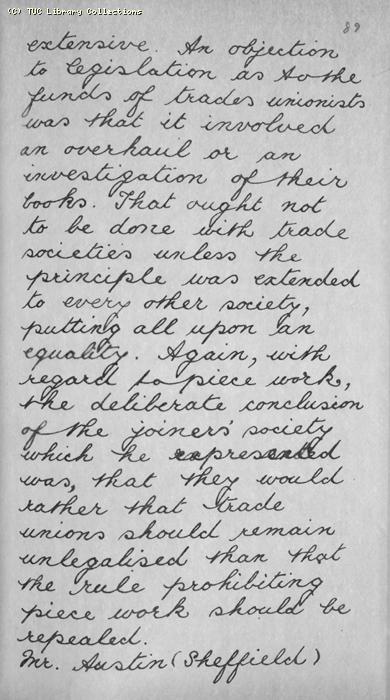 (C) TUC Library Collections
89
extensive. An objection
to legislation as to the
funds of trades unionists
was that it involved
an overhaul or an
investigation of their
books. That ought not
to be done with trade
societies unless the
principle was extended
to every other society,
putting all upon an
equality. Again, with
regard to piece work,
the deliberate conclusion
of the joiners' society
which he represented
was, that they would
rather that trade
unions should remain
unlegalised than that
the rule prohibiting
piece work should be
repealed.
Mr. Austin (Sheffield)